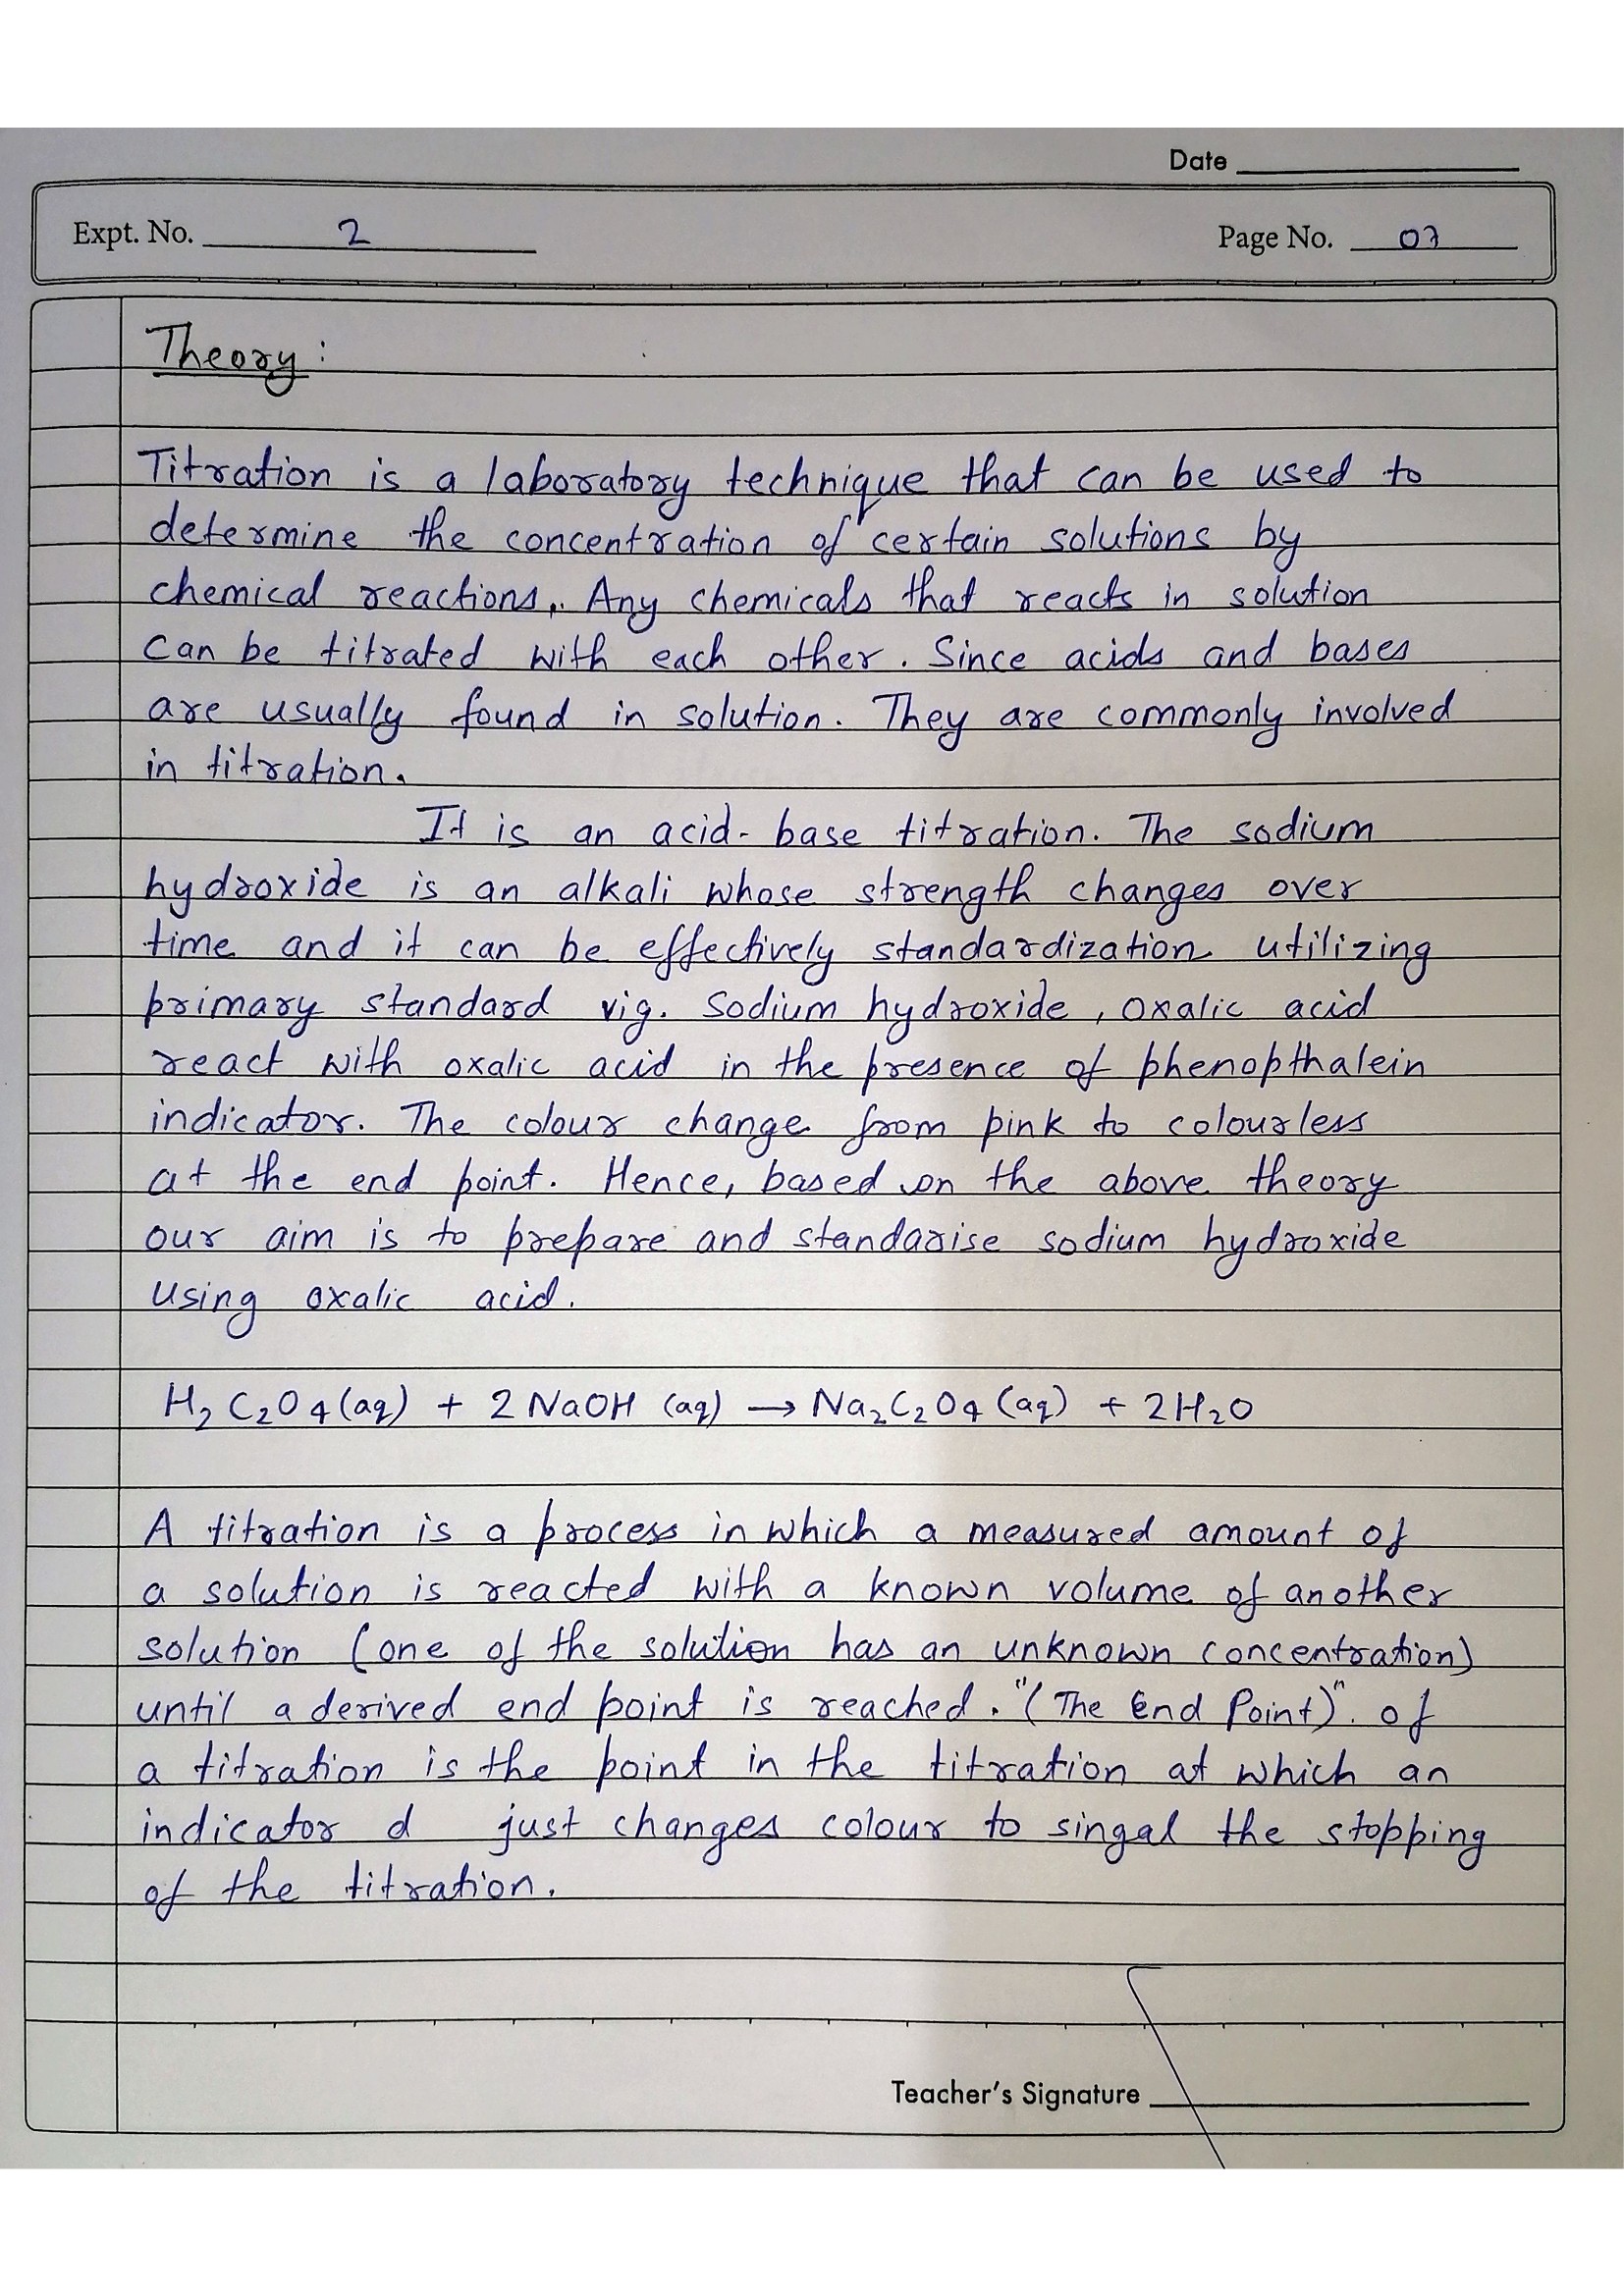 Date
Expt. No. 2
Page No. 07
Theory :
Titration is a laboratory technique that can be used to
determine the concentration of certain solutions by
chemical reactions. Any chemicals that reacts in solution
can be titrated with each other. Since acids and bases
are usually found in solution. They are commonly involved
in titration.
It is an acid-base titration. The sodium
hydroxide is an alkali whose strength changes over
time and it can be effectively standardization utilizing
primary standard vig. Sodium hydroxide, oxalic acid
react with oxalic acid in the presence of phenopthalein
indicator. The colour change from pink to colourless
at the end point. Hence, based on the above theory
our aim is to prepare and standarise sodium hydroxide
using oxalic acid.
H₂C₂O₄(aq) + 2 NaOH (aq) → Na₂C₂O₄ (aq) + 2H₂O
A titration is a process in which a measured amount of
a solution is reacted with a known volume of another
solution (one of the solution has an unknown concentration)
until a derived end point is reached. "(The End Point)". of
a titration is the point in the titration at which an
indicator d just changes colour to singal the stopping
of the titration.
Teacher's Signature